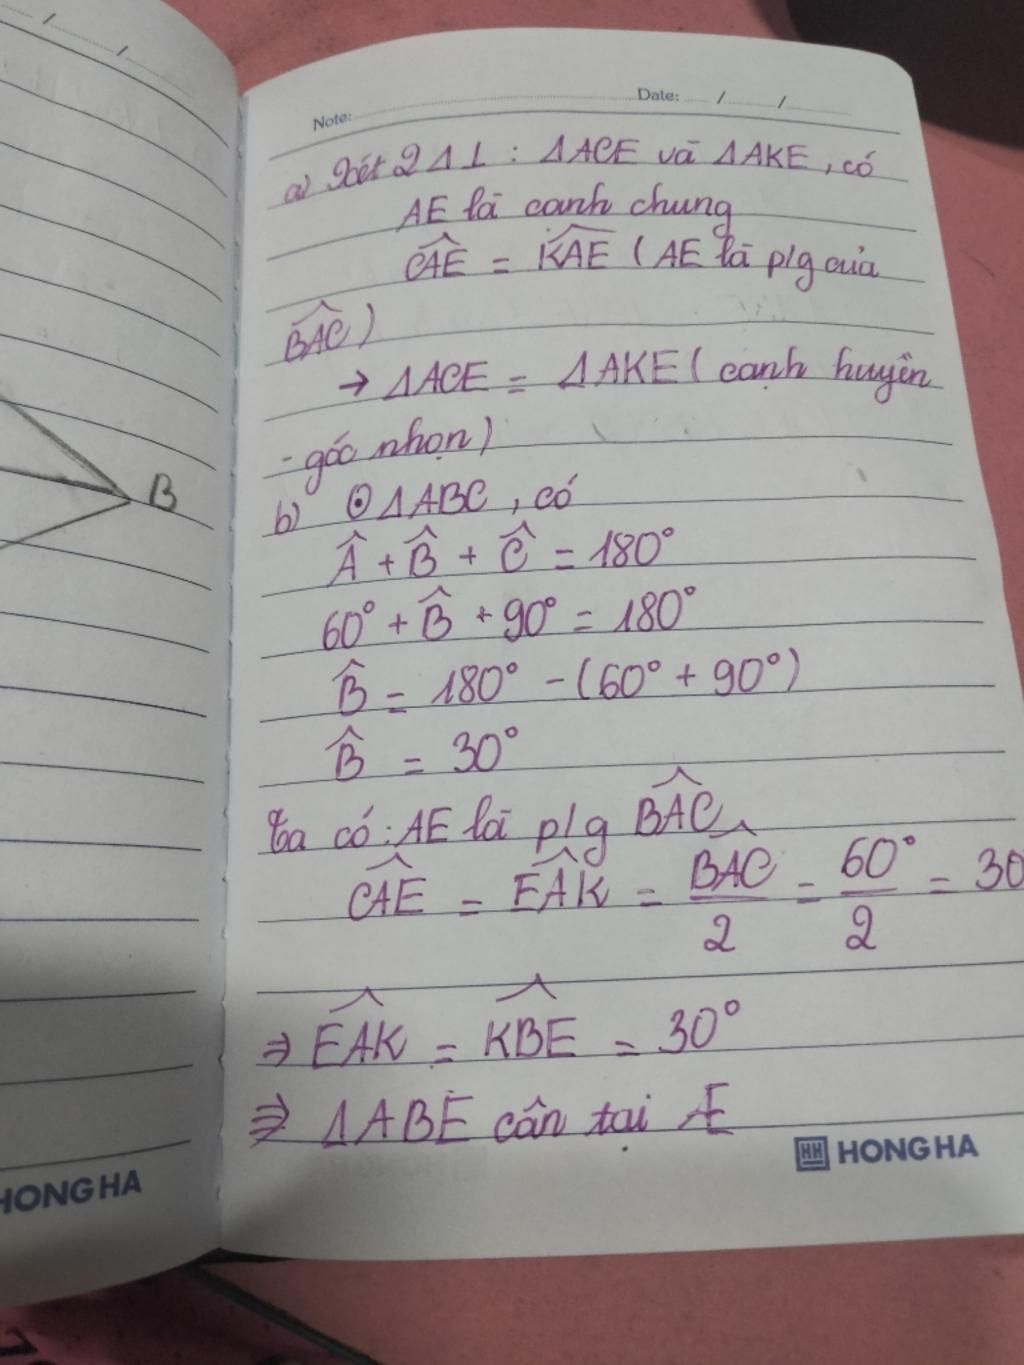 Note:
Date: / /
a) Xét 2 Δ ⊥ : ΔACE và ΔAKE , có
AE là cạnh chung
CAE = KAE ( AE là p/g của
BAC )
→ ΔACE = ΔAKE ( cạnh huyền
- góc nhọn )
B
b) ⊙ ΔABC , có
Â + B̂ + Ĉ = 180°
60° + B̂ + 90° = 180°
B̂ = 180° - ( 60° + 90° )
B̂ = 30°
Ta có : AE là p/g BAC
CAE = EAK = BAC/2 = 60°/2 = 30
⇒ EAK = KBE = 30°
⇒ ΔABE cân tại
HONG HA
HONG HA